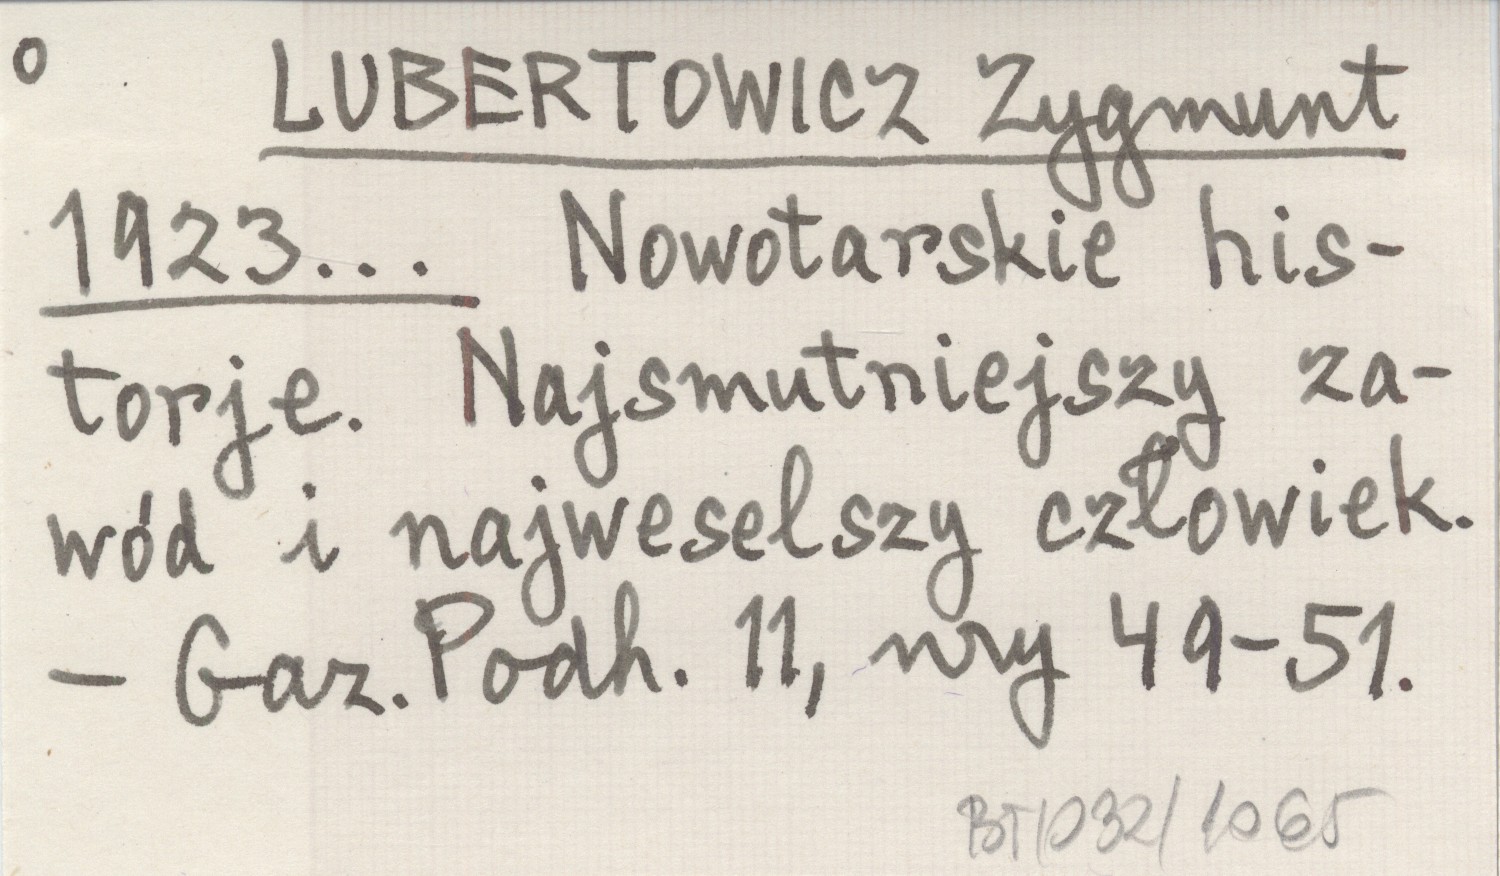 o LUBERTOWICZ Zygmunt
1923... Nowotarskie his-
torje. Najsmutniejszy za-
wód i najweselszy człowiek.
- Gaz. Podh. 11, nry 49-51.
BT/032/1065